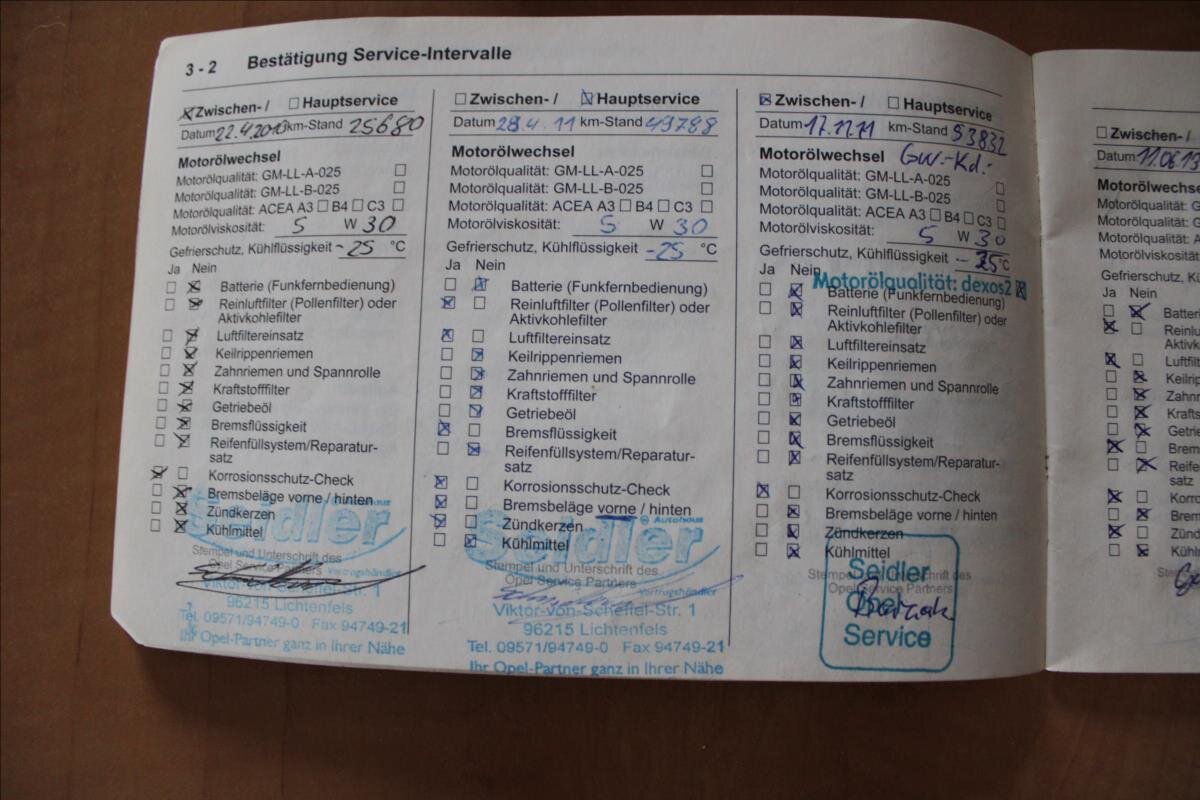 3 - 2 Bestätigung Service-Intervalle
Zwischen- / Hauptservice
Datum 22.4.2010 km-Stand 25680
Motorölwechsel
Motorölqualität: GM-LL-A-025
Motorölqualität: GM-LL-B-025
Motorölqualität: ACEA A3 B4 C3
Motorölviskosität: 5 W 30
Gefrierschutz, Kühlflüssigkeit -25 °C
Ja Nein
Batterie (Funkfernbedienung)
Reinluftfilter (Pollenfilter) oder
Aktivkohlefilter
Luftfiltereinsatz
Keilrippenriemen
Zahnriemen und Spannrolle
Kraftstofffilter
Getriebeöl
Bremsflüssigkeit
Reifenfüllsystem/Reparatur-
satz
Korrosionsschutz-Check
Bremsbeläge vorne / hinten
Zündkerzen
Kühlmittel
Autohaus
Seidler
Stempel und Unterschrift des
Opel Service Partners
Vertragshändler
Viktor-von-Scheffel-Str. 1
96215 Lichtenfels
Tel. 09571/94749-0 Fax 94749-21
Ihr Opel-Partner ganz in Ihrer Nähe
Zwischen- / Hauptservice
Datum 28.4.11 km-Stand 49788
Motorölwechsel
Motorölqualität: GM-LL-A-025
Motorölqualität: GM-LL-B-025
Motorölqualität: ACEA A3 B4 C3
Motorölviskosität: 5 W 30
Gefrierschutz, Kühlflüssigkeit -25 °C
Ja Nein
Batterie (Funkfernbedienung)
Reinluftfilter (Pollenfilter) oder
Aktivkohlefilter
Luftfiltereinsatz
Keilrippenriemen
Zahnriemen und Spannrolle
Kraftstofffilter
Getriebeöl
Bremsflüssigkeit
Reifenfüllsystem/Reparatur-
satz
Korrosionsschutz-Check
Bremsbeläge vorne / hinten
Zündkerzen
Kühlmittel
Autohaus
Seidler
Stempel und Unterschrift des
Opel Service Partners
Vertragshändler
Viktor-von-Scheffel-Str. 1
96215 Lichtenfels
Tel. 09571/94749-0 Fax 94749-21
Ihr Opel-Partner ganz in Ihrer Nähe
Zwischen- / Hauptservice
Datum 17.11.11 km-Stand 53832
Motorölwechsel Gw.-Kd.-
Motorölqualität: GM-LL-A-025
Motorölqualität: GM-LL-B-025
Motorölqualität: ACEA A3 B4 C3
Motorölviskosität: 5 W 30
Gefrierschutz, Kühlflüssigkeit °C
Ja Nein
Motorölqualität: dexos2
Batterie (Funkfernbedienung)
Reinluftfilter (Pollenfilter) oder
Aktivkohlefilter
Luftfiltereinsatz
Keilrippenriemen
Zahnriemen und Spannrolle
Kraftstofffilter
Getriebeöl
Bremsflüssigkeit
Reifenfüllsystem/Reparatur-
satz
Korrosionsschutz-Check
Bremsbeläge vorne / hinten
Zündkerzen
Kühlmittel
Stempel und Unterschrift des
Opel Service Partners
Seidler
Opel
Service
Zwischen- /
Datum 11.06.13
Motorölwechse
Motorölqualität: G
Motorölqualität: G
Motorölqualität: A
Motorölviskosität
Gefrierschutz, Kü
Ja Nein
Batterie
Reinlu
Aktivk
Luftfilt
Keilrip
Zahnr
Kraftst
Getrie
Brems
Reifen
satz
Korros
Brems
Zünd
Kühl